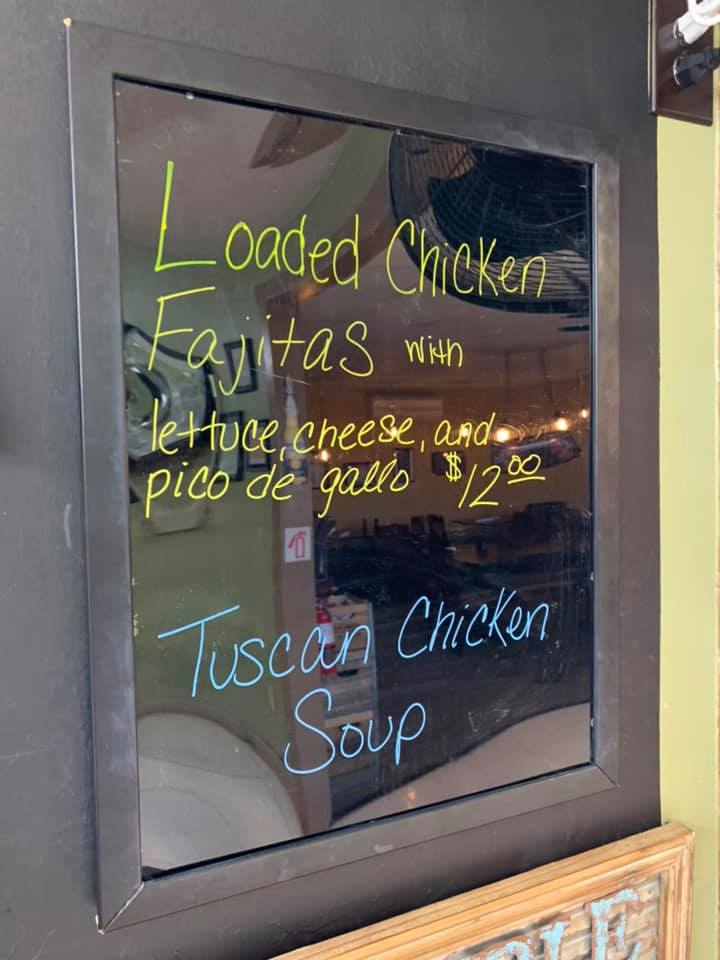 Loaded Chicken
Fajitas with
lettuce, cheese, and
pico de gallo $12.00
Tuscan Chicken
Soup